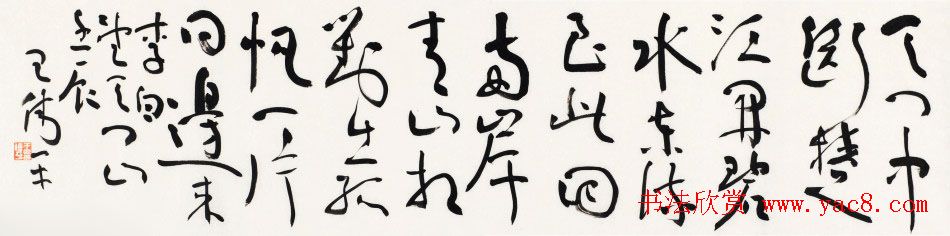 天門中
斷楚
江開碧
水東流
至此回
兩岸
青山相
對出孤
帆一片
日邊來
李白
望天門山
壬辰
书法欣赏 www.yac8.com